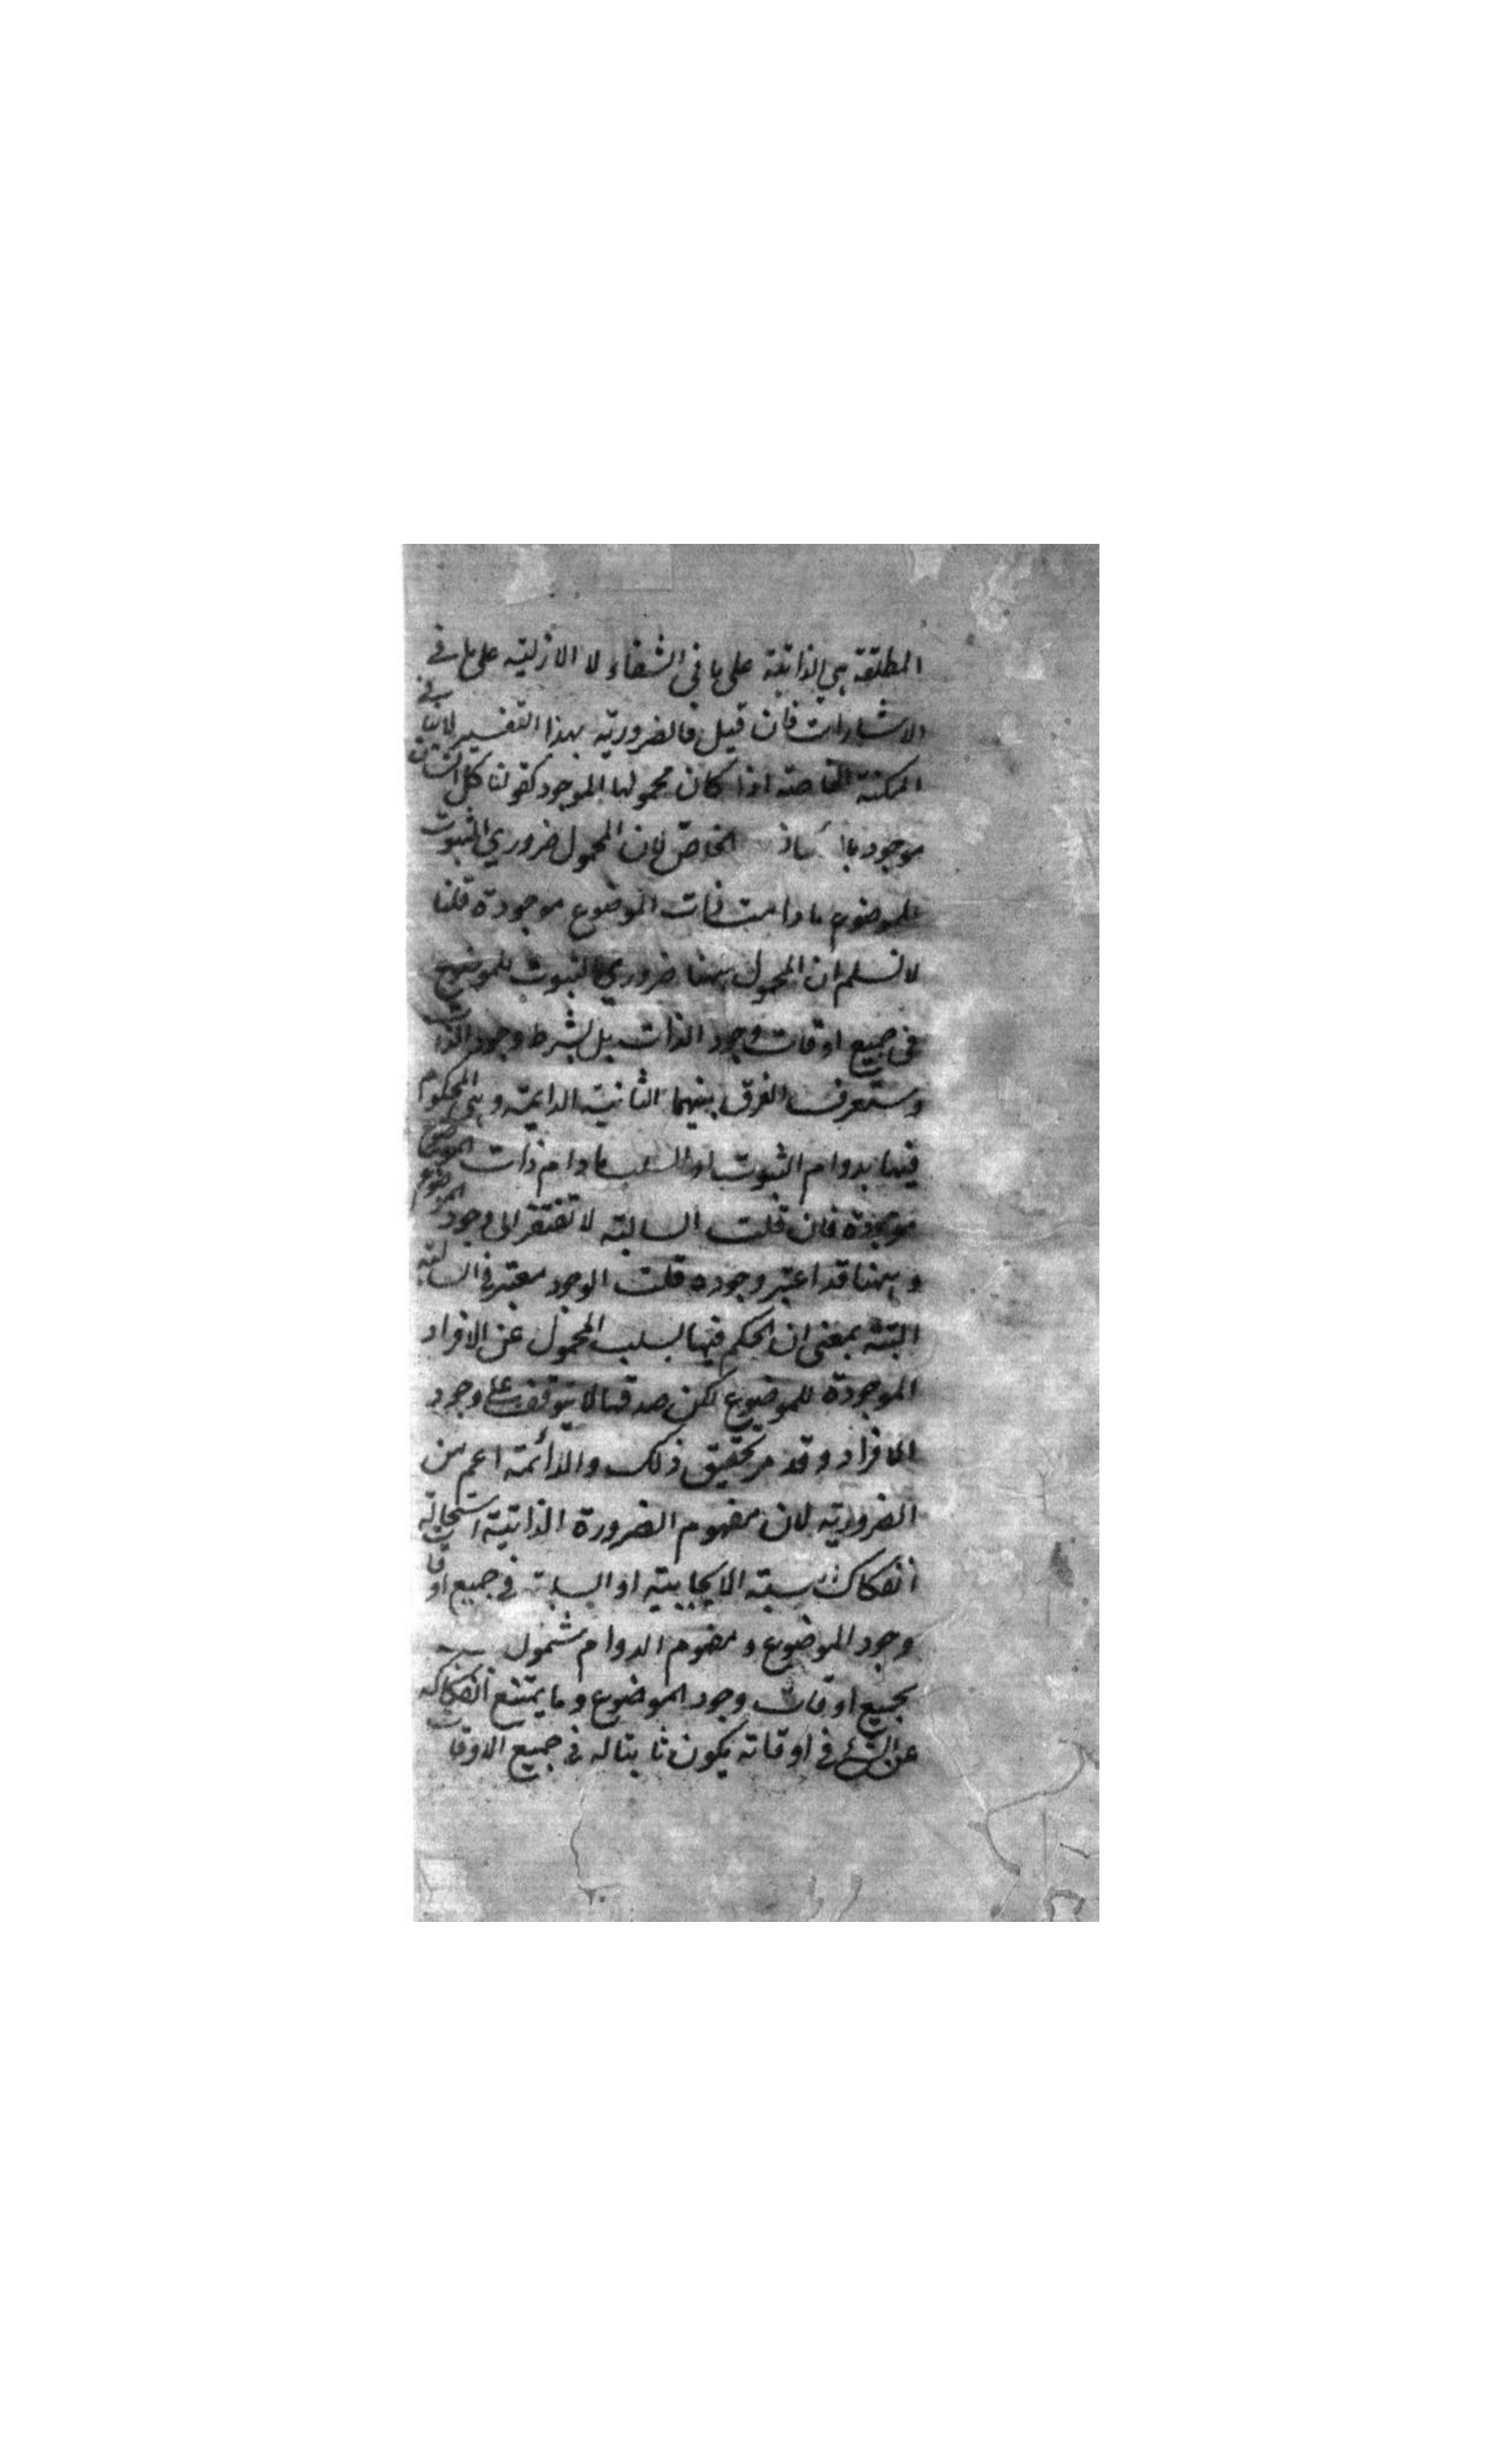 المطلقة هي الذاتية على ما في الشفاء لا الازلية على ما في
الاشارات فان قيل فالضرورية بهذا التفسير لا تنافي
الممكنة الخاصة اذا كان محمولها الموجود كقولنا كل انسان
موجود الخاص لان المحمول ضروري الثبوت
للموضوع ما دامت ذات الموضوع موجودة قلنا
لا نسلم ان المحمول ههنا ضروري الثبوت للموضوع
في جميع اوقات وجود الذات بل بشرط وجود الذات
وستعرف الفرق بينهما الثانية الدائمة وهي المحكوم
فيها بدوام الثبوت او السلب ما دام ذات الموضوع
موجودة فان قلت السالبة لا تفتقر الى وجود الموضوع
وههنا قد اعتبر وجوده قلت الوجود معتبر في السالبة
البتة بمعنى ان الحكم فيها بسلب المحمول عن الافراد
الموجودة للموضوع لكن صدقها لا يتوقف على وجود
الافراد وقد مر تحقيق ذلك والدائمة اعم من
الضرورية لان مفهوم الضرورة الذاتية استحالة
انفكاك النسبة الايجابية او السلبية في جميع اوقات
وجود الموضوع ومفهوم الدوام شمول
لجميع اوقات وجود الموضوع وما يمتنع انفكاكه
عن الشئ في اوقاته يكون ثابتا له في جميع الاوقات